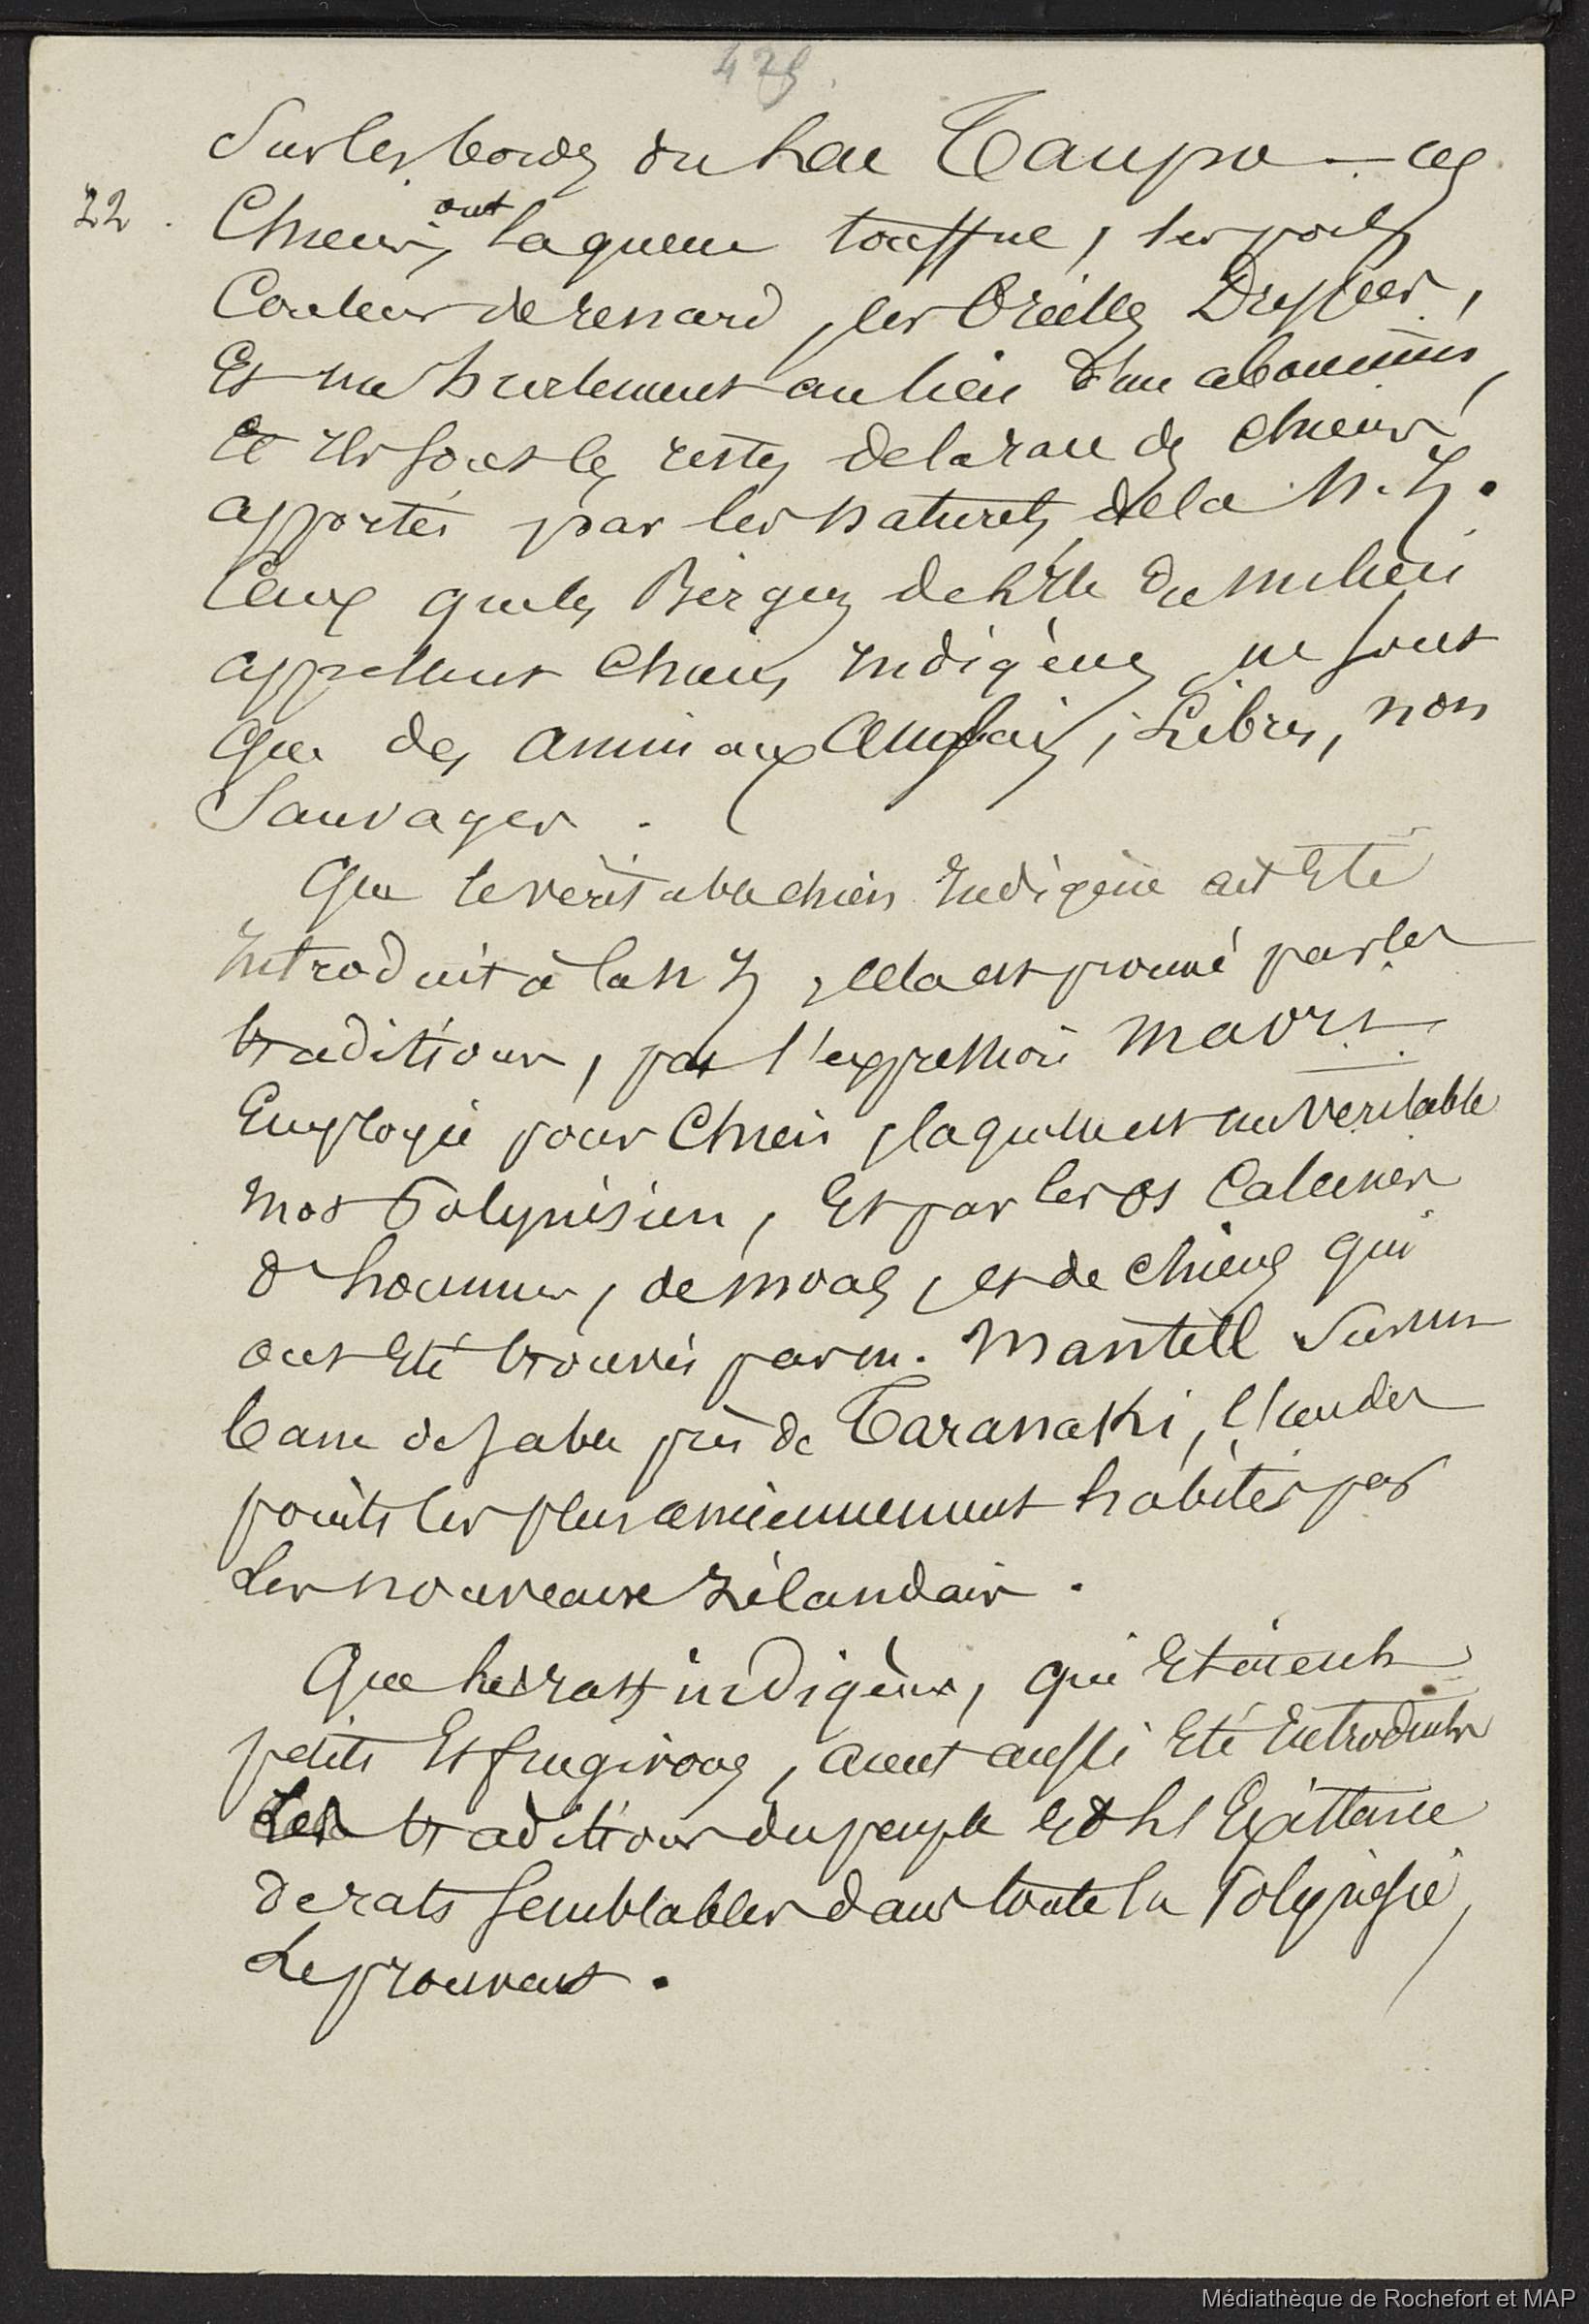 425.
Sur les bords du Lac Taupo — ces
22. Chiens, ont la queue touffue, les poils
Couleur de renard, les Oreilles Dressées,
Et un hurlement au lieu d'un aboiement,
et Ils sont les restes de la race des chiens
apportés par les naturels de la N. Z.
Ceux que les Bergers de l'Ile du milieu
appellent Chiens Indigènes ne sont
que des animaux Anglais, Libres, non
Sauvages.
Que le véritable chien Indigène ait Eté
Introduit à la N Z, cela est prouvé par les
traditions, par l'expression maori
Employée pour Chien, laquelle est un véritable
mot Polynésien, Et par les os Calcinés
d'hommes, de moas, et de chiens qui
ont Eté trouvés par m. Mantell Sur un
banc de sable près de Taranaki, l'un des
points les plus anciennement habités par
Les nouveaux zélandais.
Que les rats indigènes, qui Etaient
petits Et frugivores, aient aussi Eté Introduits
Les traditions du peuple et l'Existence
de rats semblables dans toute la Polynésie,
Le prouvent.
Médiathèque de Rochefort et MAP